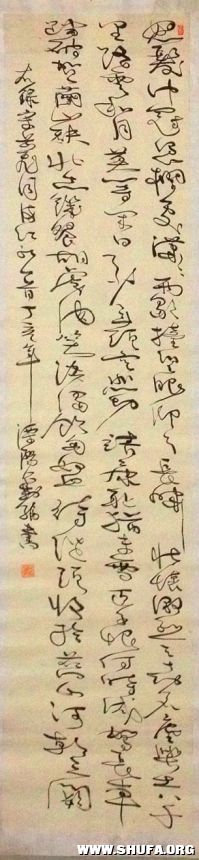 怒髮沖冠憑欄處瀟瀟雨歇抬望眼仰天長嘯壯懷激烈三十功名塵與土八千
里路雲和月莫等閒白了少年頭空悲切靖康恥猶未雪臣子恨何時滅駕長車
踏破賀蘭山缺壯志饑餐胡虜肉笑談渴飲匈奴血待從頭收拾舊山河朝天闕
右錄宋岳飛詞滿江紅一首丁亥年 書
WWW.SHUFA.ORG